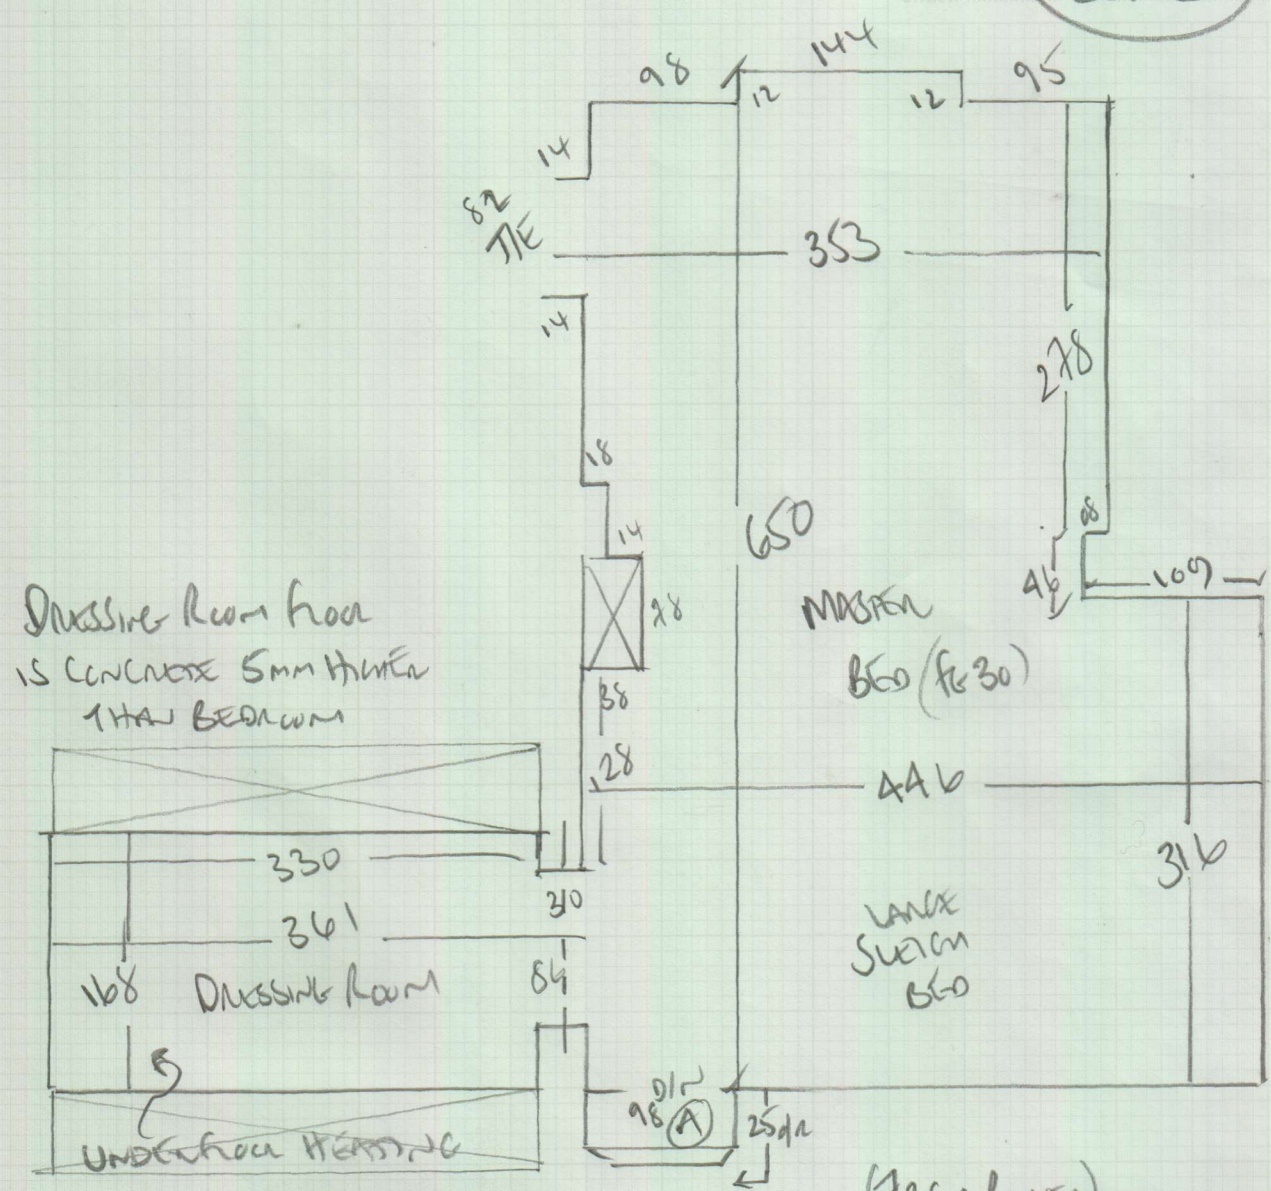 98
144
95
12
12
14
82
T/E
353
14
278
18
14
650
08
46
109
DRESSING ROOM FLOOR
IS CONCRETE 5MM HIGHER
THAN BEDROOM
MASTER
BED (FE30)
38
28
446
330
316
361
84
168
DRESSING ROOM
LARGE
SLEIGH
BED
D/R
98 (A)
25d/r
UNDERFLOOR HEATING